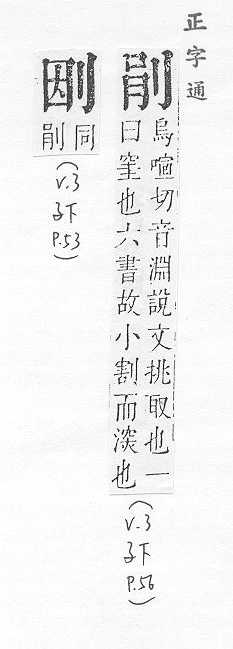 正字通
剈
烏喧切音淵說文挑取也一
曰窐也六書故小割而深也
(v.3
子下
P.56)
同剈
(v.3
子下
P.53)